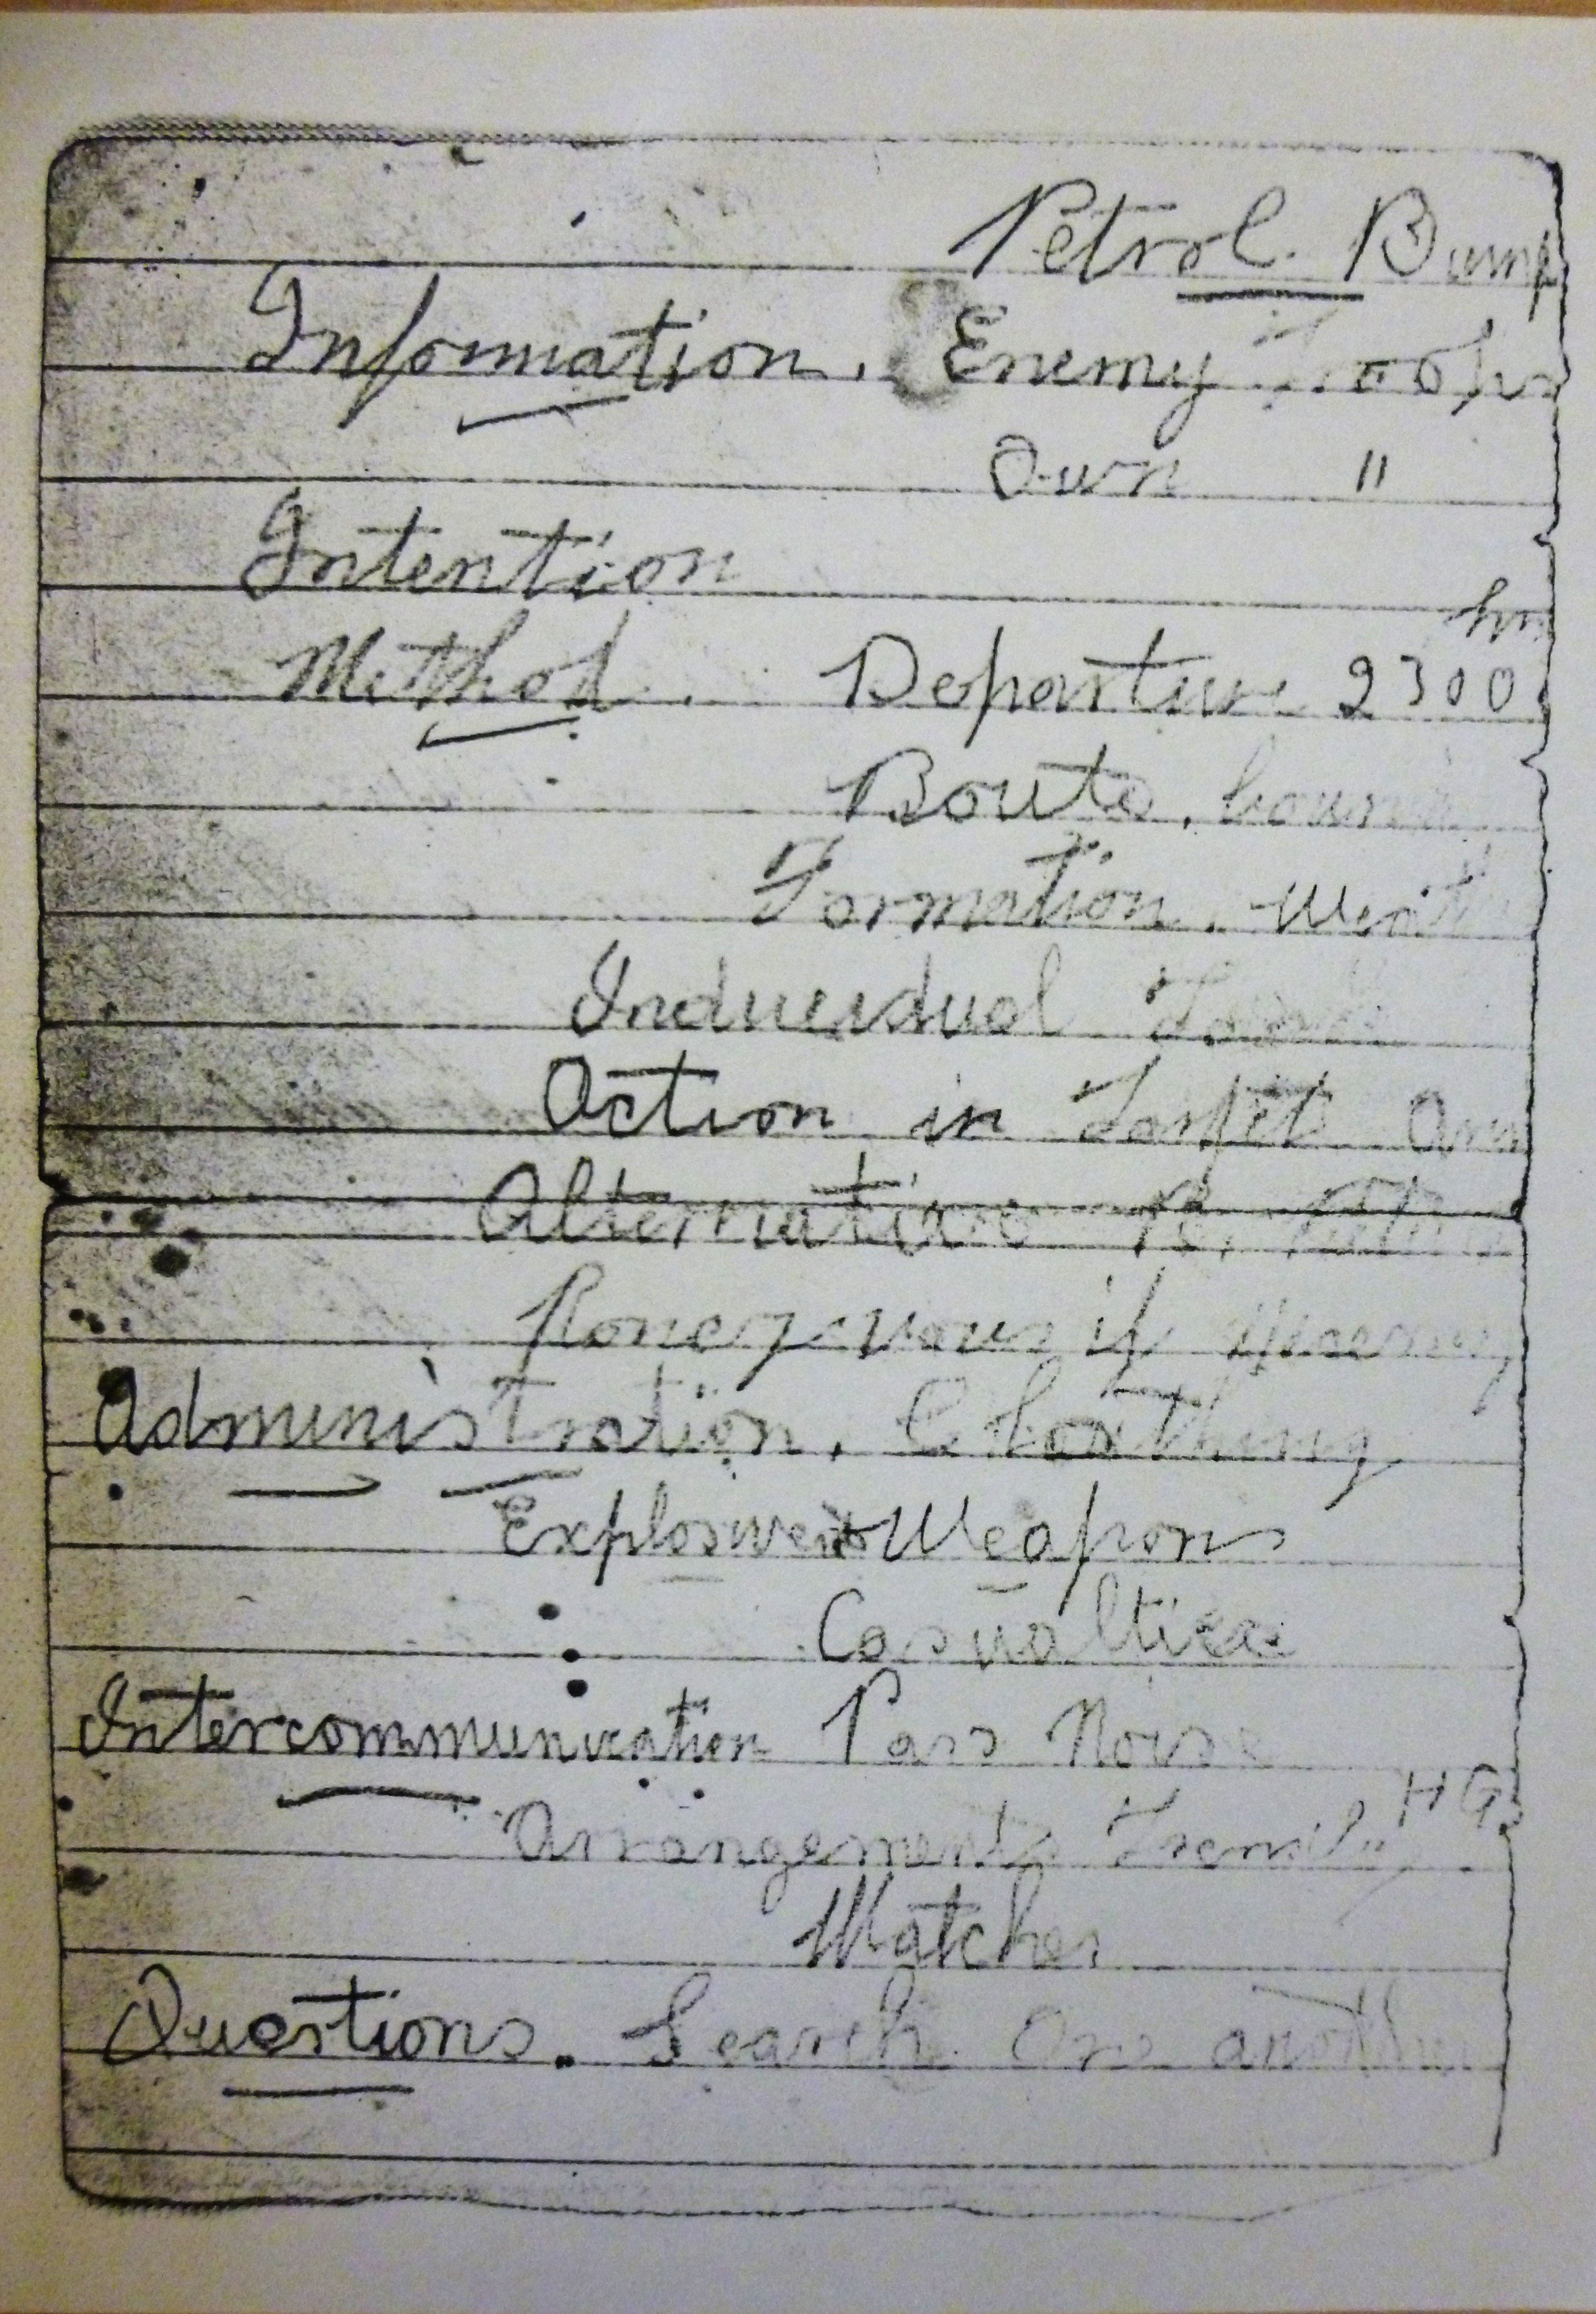 Petrol Dump
Information. Enemy Troops
Own "
Intention
hrs
Method. Departure 2300
Route.
Formation.
Individual
Action in Target Area
Alternative
if
Administration. Clothing
Explosives + Weapons
Casualties
Intercommunication Pass Noise
HQ
Arrangements
Watches
Questions. Search One another